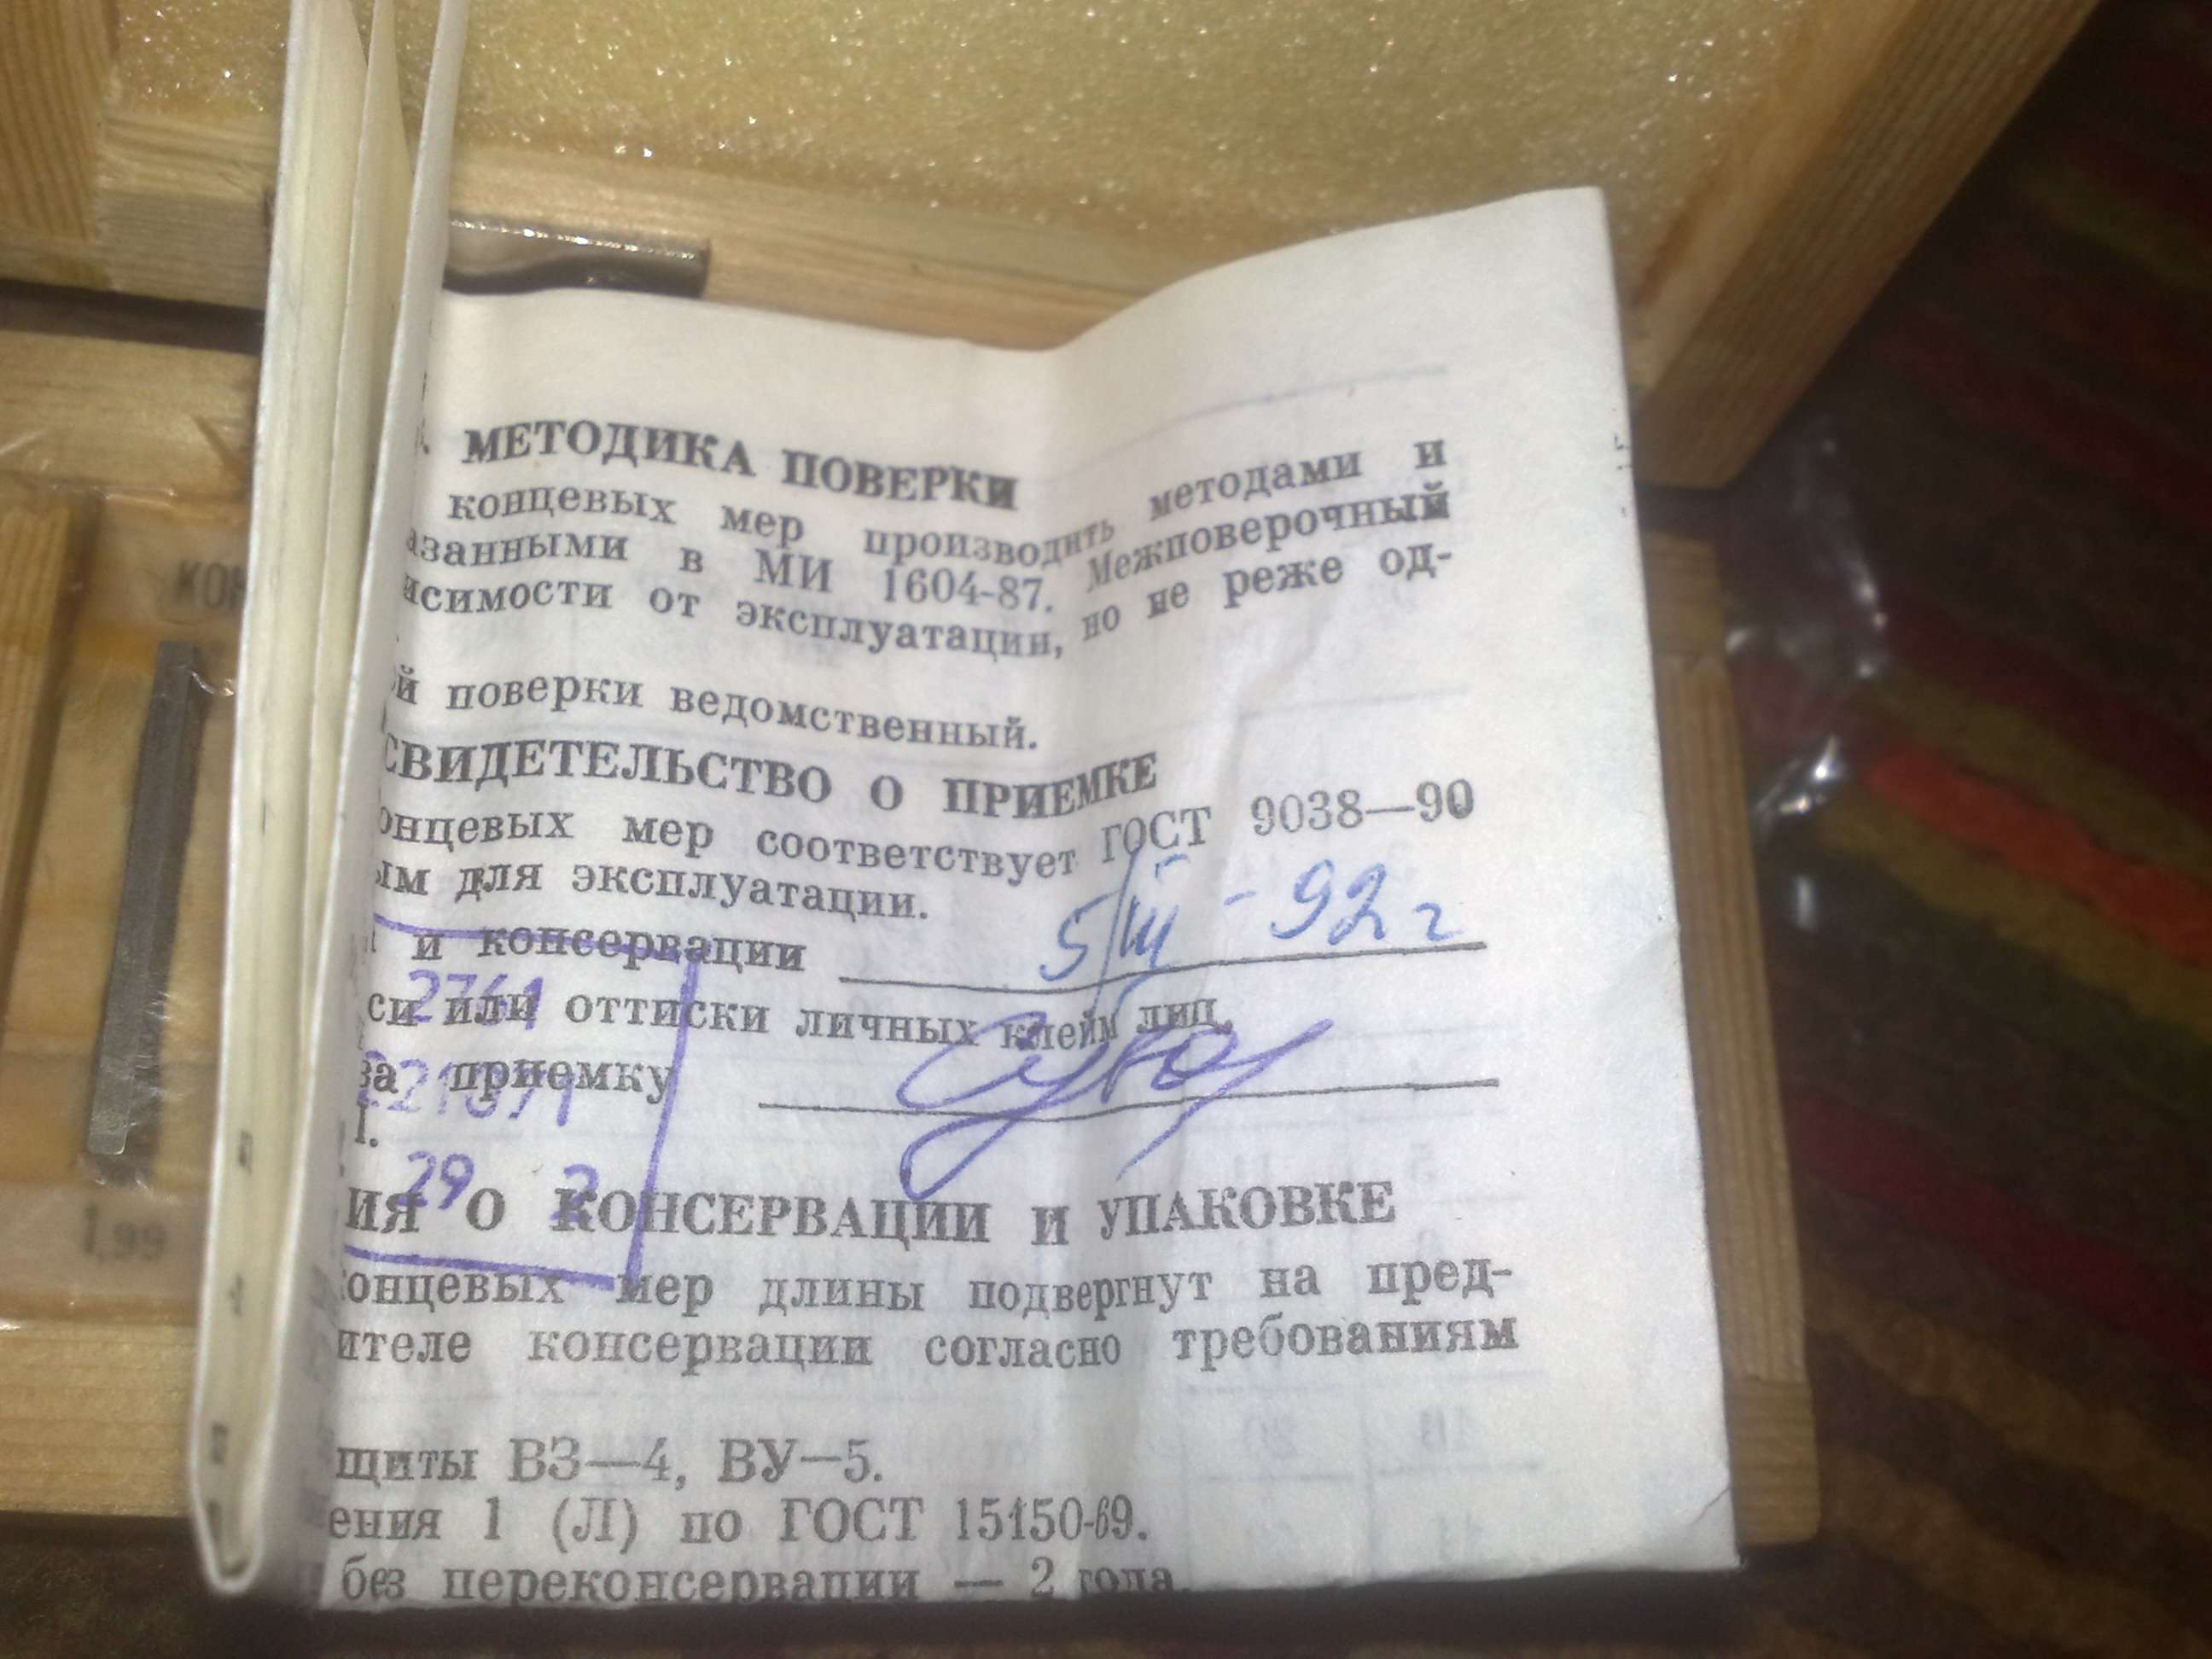 МЕТОДИКА ПОВЕРКИ
концевых мер производить методами и
азанными в МИ 1604-87. Межповерочный
исимости от эксплуатации, но не реже од-
й поверки ведомственный.
СВИДЕТЕЛЬСТВО О ПРИЕМКЕ
онцевых мер соответствует ГОСТ 9038—90
ым для эксплуатации.
и консервации 5/III - 92 г
2761
си или оттиски личных клейм лиц,
за приемку
1.
29 2
ИЯ О КОНСЕРВАЦИИ И УПАКОВКЕ
онцевых мер длины подвергнут на пред-
ителе консервации согласно требованиям
щиты ВЗ—4, ВУ—5.
ения 1 (Л) по ГОСТ 15150-69.
без переконсервации — 2 года.
КОН
1,99